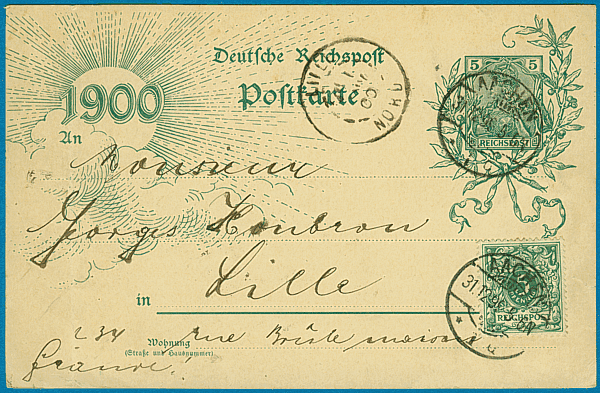 Deutsche Reichspost
Postkarte
1900
5 5
REICHSPOST
AACHEN
LILLE
NORD
An
Monsieur
Georges Honbron
Lille
in
AACHEN
31.12.99
REICHSPOST
Wohnung
(Straße und Hausnummer)
234 Rue Brûle maison
France!